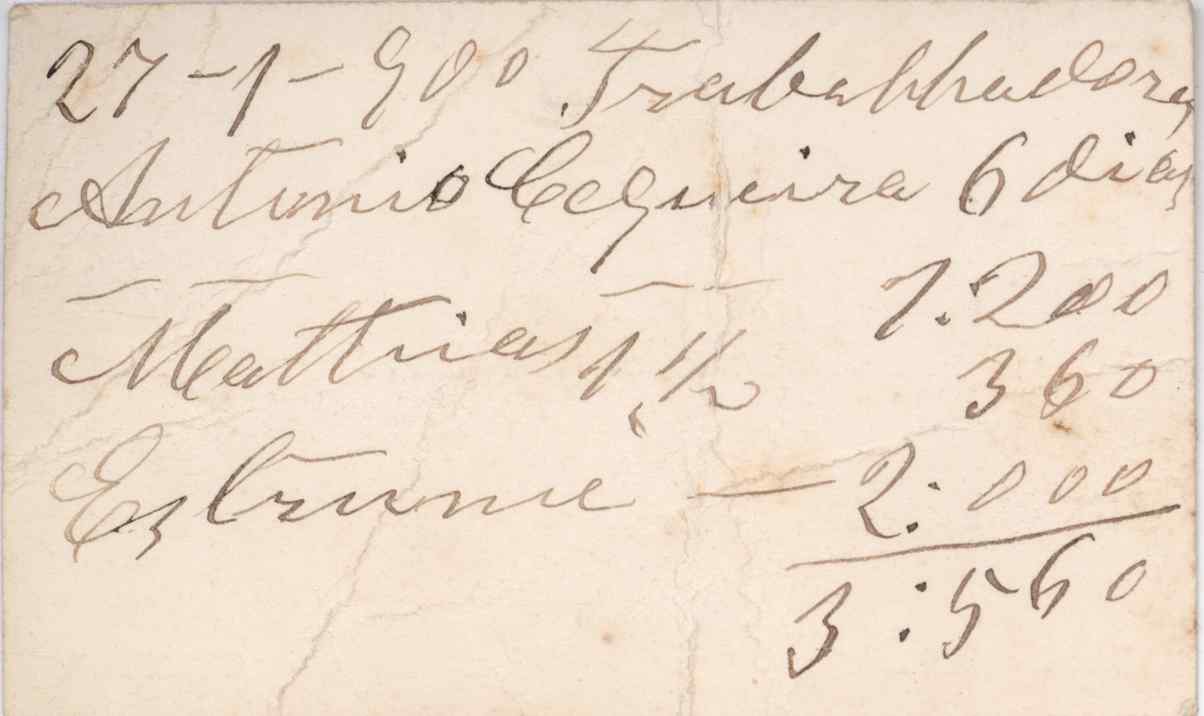 27-1-900 Trabalhadores
Antonio Cequeira 6 dias
— — — — 1.200
Mathias 1 1/2 360
Estrume — 2:000
3:560